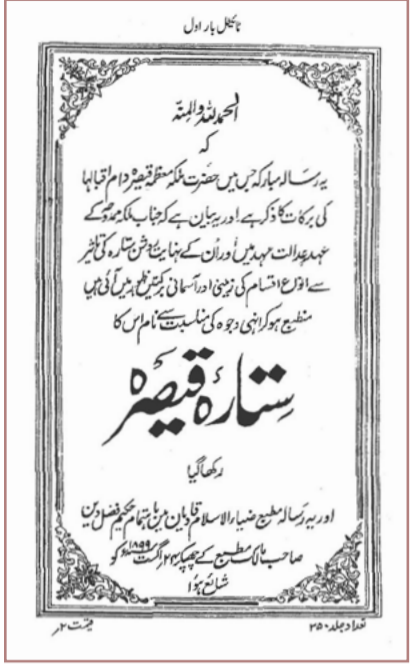 ٹائیٹل بار اول
الحمد للہ والمنہ
کہ
یہ رسالہ مبارکہ جس میں حضرت ملکہ معظمہ قیصرہ دام اقبالہا
کی برکات کا ذکر ہے اور یہ بیان ہے کہ جناب ملکہ ممدوحہ کے
عہد عدالت مہد میں اور اُن کے نہایت روشن ستارہ کی تاثیر
سے انواع اقسام کی زمینی اور آسمانی برکتیں ظہور میں آئی ہیں
منطبع ہو کر انہی وجوہ کی مناسبت سے نام اس کا
ستارہ قیصرہ
رکھا گیا
اور یہ رسالہ مطبع ضیاء الاسلام قادیان میں باہتمام حکیم فضل دین
صاحب مالک مطبع کے چھپکر ۲۴ اگست ۱۸۹۹ء کو
شائع ہوا
تعداد جلد ۳۵۰ قیمت ۲؍